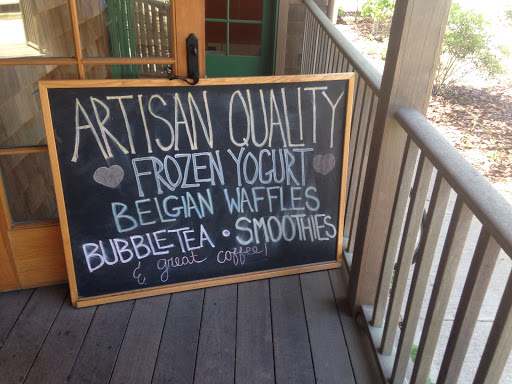 ARTISAN QUALITY
FROZEN YOGURT
BELGIAN WAFFLES
BUBBLETEA • SMOOTHIES
& great coffee!